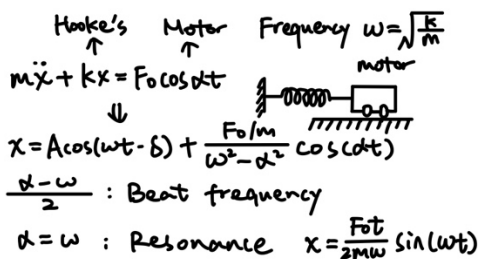 Hooke's Motor Frequency ω=√(k/m)
mẍ + kx = F₀cosαt
motor
x = Acos(ωt-δ) + (F₀/m)/(ω²-α²) cos(αt)
(α-ω)/2 : Beat frequency
α = ω : Resonance x = F₀t/2mω sin(ωt)